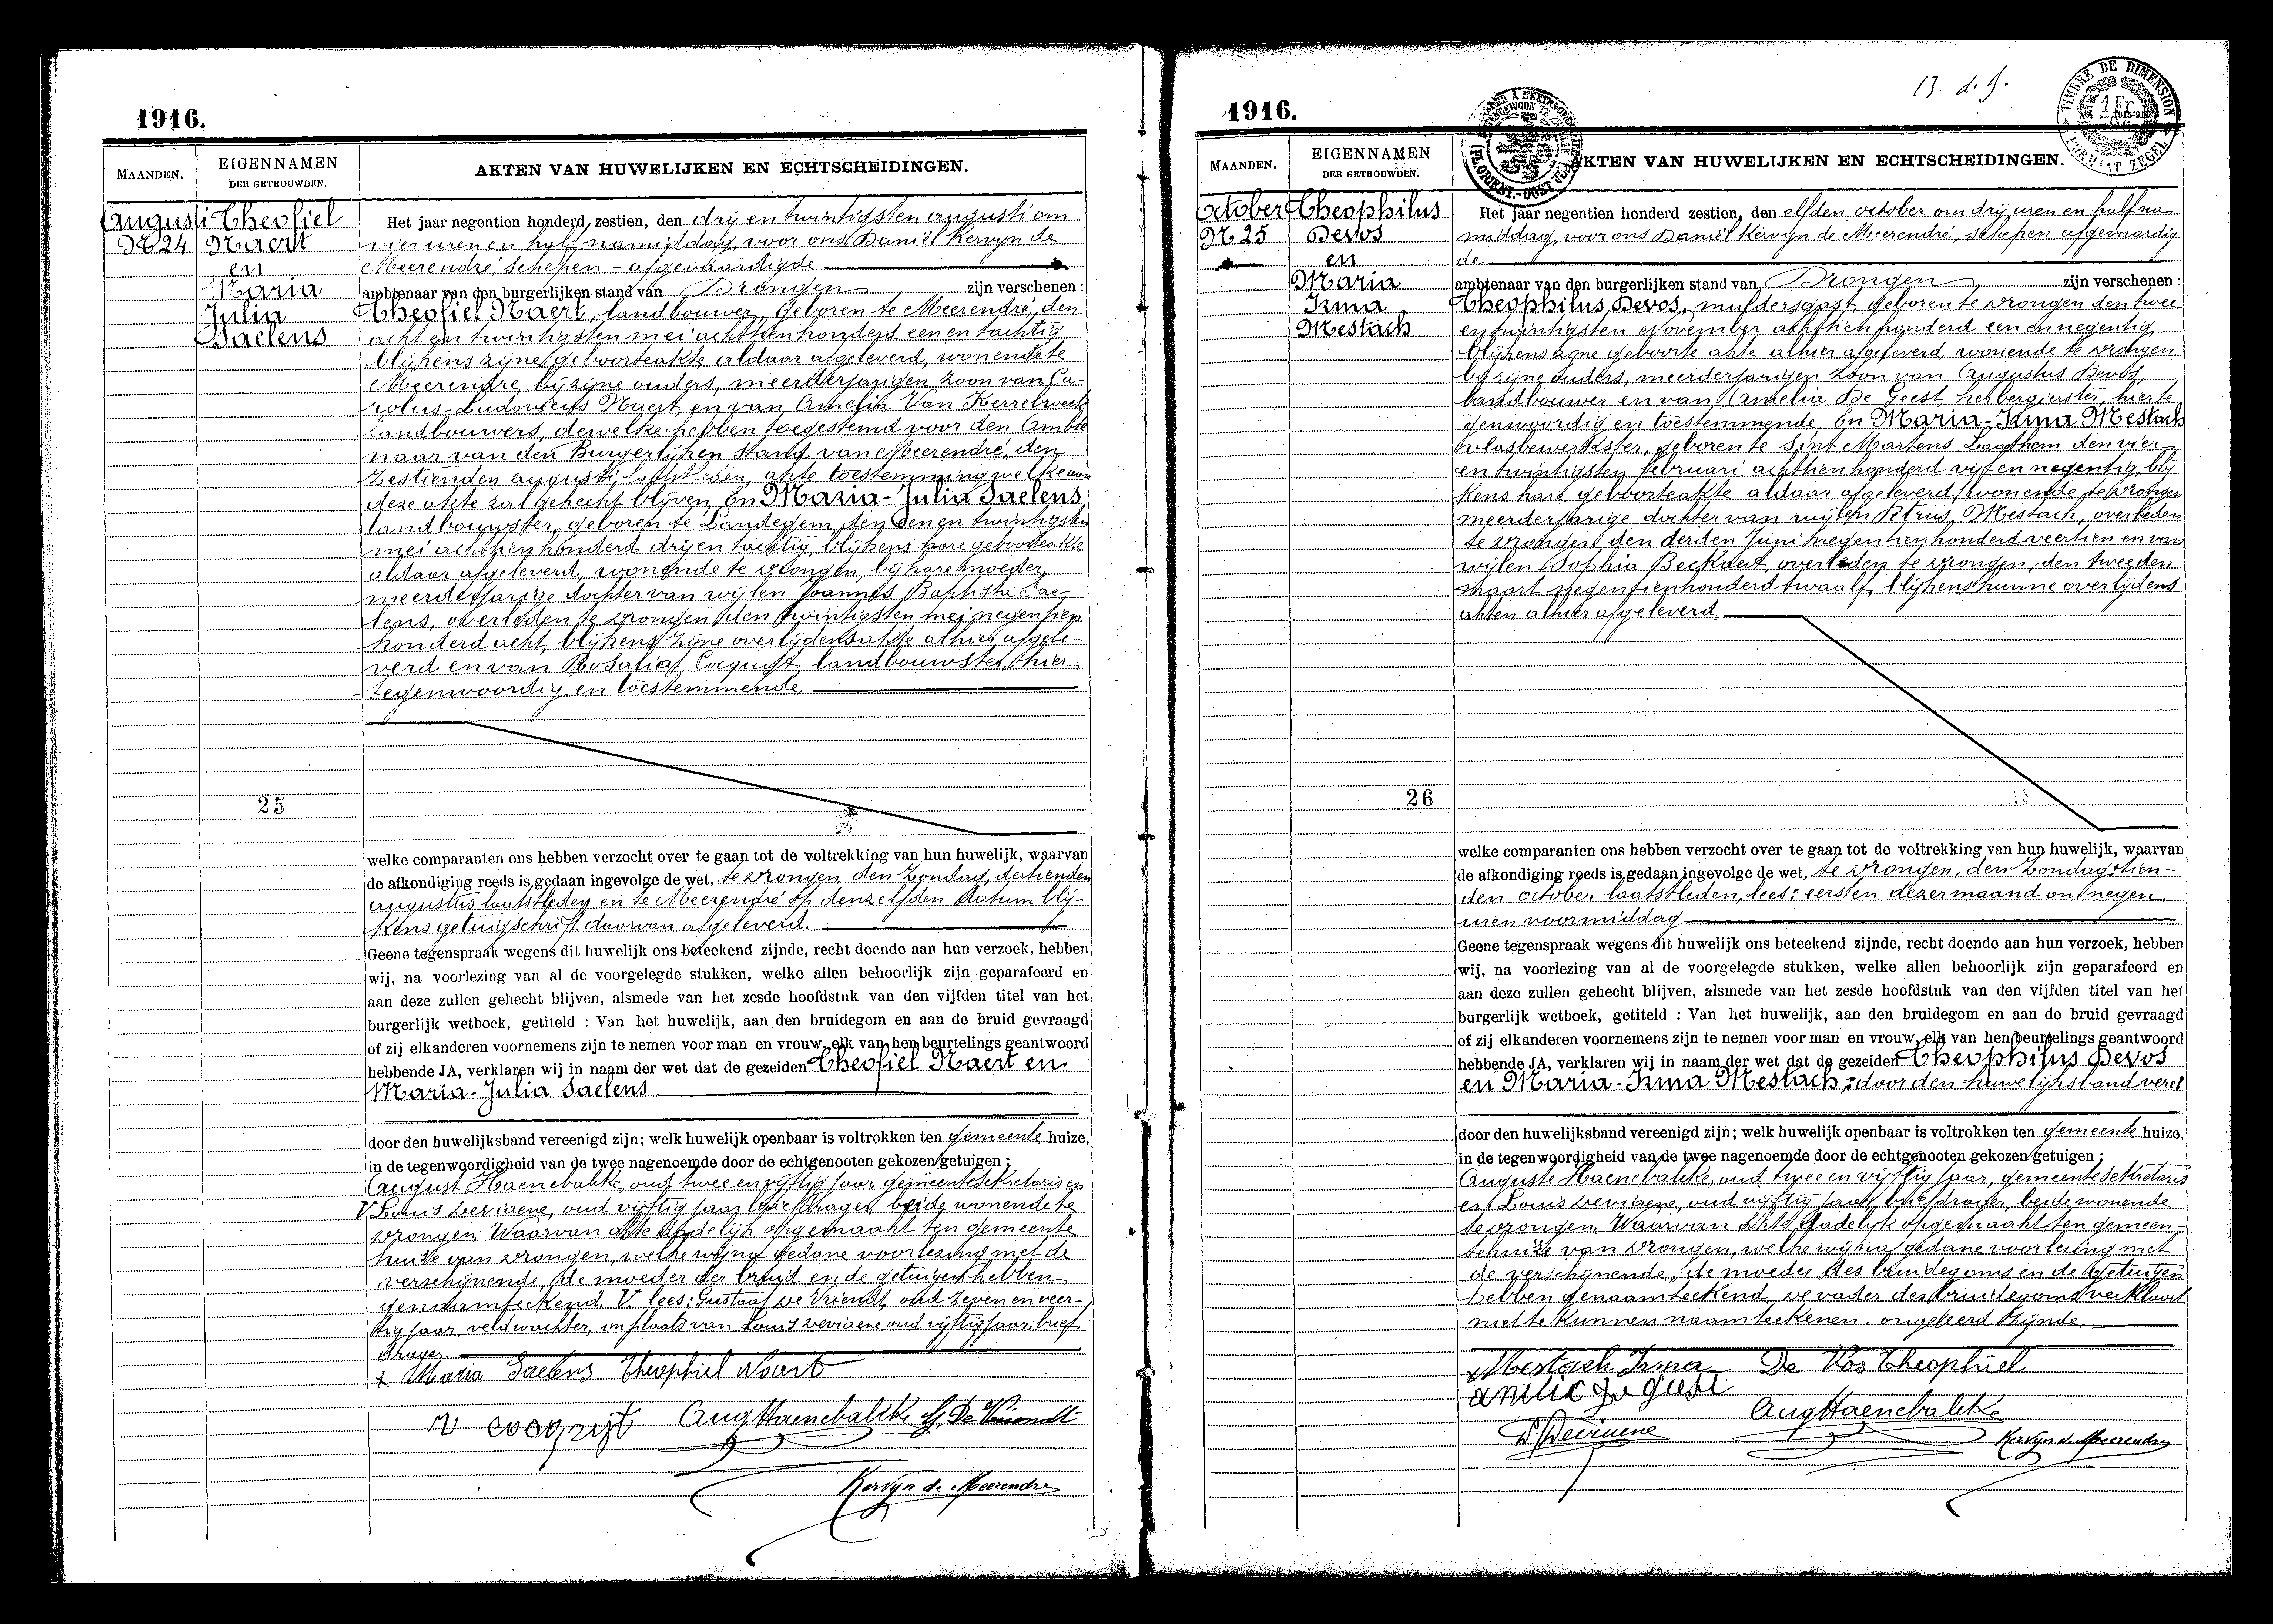 1916.
MAANDEN.
EIGENNAMEN
DER GETROUWDEN.
AKTEN VAN HUWELIJKEN EN ECHTSCHEIDINGEN.
Augusti
N 24
Theofiel
Naert
en
Maria
Julia
Saelens
Het jaar negentien honderd zestien, den drij en twintigsten augusti om
vier uren en half namiddag, voor ons Daniël Kervyn de
Meerendré, schepen - afgevaardigde
ambtenaar van den burgerlijken stand van Drongen zijn verschenen :
Theofiel Naert, landbouwer, geboren te Meerendré, den
acht en twintigsten mei achttienhonderd een en tachtig
blijkens zijne geboorteakte aldaar afgeleverd, wonende te
Meerendre bij zijne ouders, meerderjarigen zoon van Ca-
rolus-Ludovicus Naert en van Amelia Van Kerrebroeck
landbouwers, dewelke hebben toegestemd voor den Ambte
naar van den Burgerlijken stand van Meerendré, den
zestienden augusti akte toestemming welke aan
deze akte zal gehecht blijven. En Maria-Julia Saelens
landbouwster, geboren te Landegem, den een en twintigsten
mei achttienhonderd drij en tachtig blijkens hare geboorteakte
aldaar afgeleverd, wonende te Drongen, bij hare moeder,
meerderjarige dochter van wijlen Joannes Baptista Sae-
lens, overleden te Drongen den twintigsten mei negentien
honderd acht, blijkens zijne overlijdensakte alhier afgele-
verd en van Rosalia Coquyt, landbouwster, hier
tegenwoordig en toestemmende.
25
welke comparanten ons hebben verzocht over te gaan tot de voltrekking van hun huwelijk, waarvan
de afkondiging reeds is gedaan ingevolge de wet, te Drongen den Zondag, dertienden
augustus laatstleden en te Meerendré op denzelfden datum blij-
kens getuigschrift daarvan afgeleverd.
Geene tegenspraak wegens dit huwelijk ons beteekend zijnde, recht doende aan hun verzoek, hebben
wij, na voorlezing van al de voorgelegde stukken, welke allen behoorlijk zijn geparafeerd en
aan deze zullen gehecht blijven, alsmede van het zesde hoofdstuk van den vijfden titel van het
burgerlijk wetboek, getiteld : Van het huwelijk, aan den bruidegom en aan de bruid gevraagd
of zij elkanderen voornemens zijn te nemen voor man en vrouw, elk van hen beurtelings geantwoord
hebbende JA, verklaren wij in naam der wet dat de gezeiden Theofiel Naert en
Maria-Julia Saelens
door den huwelijksband vereenigd zijn; welk huwelijk openbaar is voltrokken ten gemeente huize,
in de tegenwoordigheid van de twee nagenoemde door de echtgenooten gekozen getuigen ;
August Haenebalcke, oud twee en vijftig jaar gemeentesekretaris en
V Louis Deviaene, oud vijftig jaar briefdrager, beide wonende te
Drongen. Waarvan akte dadelijk opgemaakt ten gemeente
huize van Drongen, welke wij na gedane voorlezing met de
verschijnende, de moeder der bruid en de getuigen hebben
genaamteekend. V lees: Gustaaf De Vriendt, oud zeven en veer-
tig jaar, veldwachter, in plaats van Louis Deviaene oud vijftig jaar, brief
drager.
x Maria Saelens Theophiel Naert
cocquyt Aug Haenebalcke G. De Vriendt
Kervyn de Meerendre
1916.
13 d.
TIMBRE DE DIMENSION
1 Fr.
FORMAAT ZEGEL
MAANDEN.
EIGENNAMEN
DER GETROUWDEN.
AKTEN VAN HUWELIJKEN EN ECHTSCHEIDINGEN.
October
N 25
Theophilus
Devos
en
Maria
Irma
Mestach
Het jaar negentien honderd zestien, den elfden october om drij uren en half na
middag, voor ons Daniël Kervyn de Meerendré, schepen afgevaardig
de
ambtenaar van den burgerlijken stand van Drongen zijn verschenen :
Theophilus Devos, muldersgast, geboren te Drongen den twee
en twintigsten november achttienhonderd een en negentig
blijkens zijne geboorte akte alhier afgeleverd, wonende te Drongen
bij zijne ouders, meerderjarigen zoon van Augustus Devos,
landbouwer en van Amelia De Geest, herbergierster, hier te
genwoordig en toestemmende. En Maria-Irma Mestach
vlasbewerkster, geboren te Sint Martens Laathem den vier
en twintigsten februari achttienhonderd vijf en negentig, blij
kens hare geboorteakte aldaar afgeleverd, wonende te Drongen
meerderjarige dochter van wijlen Petrus Mestach, overleden
te Drongen den derden Juni negentienhonderd veertien en van
wijlen Sophia Beckaert, overleden te Drongen, den tweeden
maart negentienhonderd twaalf, blijkens hunne overlijdens
akten alhier afgeleverd.
26
welke comparanten ons hebben verzocht over te gaan tot de voltrekking van hun huwelijk, waarvan
de afkondiging reeds is gedaan ingevolge de wet, te Drongen, den Zondag, tien-
den october laatstleden, lees: eersten dezer maand om negen
uren voormiddag
Geene tegenspraak wegens dit huwelijk ons beteekend zijnde, recht doende aan hun verzoek, hebben
wij, na voorlezing van al de voorgelegde stukken, welke allen behoorlijk zijn geparafeerd en
aan deze zullen gehecht blijven, alsmede van het zesde hoofdstuk van den vijfden titel van het
burgerlijk wetboek, getiteld : Van het huwelijk, aan den bruidegom en aan de bruid gevraagd
of zij elkanderen voornemens zijn te nemen voor man en vrouw, elk van hen beurtelings geantwoord
hebbende JA, verklaren wij in naam der wet dat de gezeiden Theophilus Devos
en Maria-Irma Mestach, door den huwelijksband veree
door den huwelijksband vereenigd zijn; welk huwelijk openbaar is voltrokken ten gemeente huize.
in de tegenwoordigheid van de twee nagenoemde door de echtgenooten gekozen getuigen ;
Auguste Haenebalcke, oud twee en vijftig jaar, gemeentesekretaris
en Louis Deviaene, oud vijftig jaar, briefdrager, beide wonende
te Drongen. Waarvan akte dadelijk opgemaakt ten gemeen-
tehuize van Drongen, welke wij na gedane voorlezing met
de verschijnende, de moeder des bruidegoms en de getuigen
hebben genaamteekend, de vader des bruidegoms verklaart
niet te kunnen naamteekenen, ongeleerd zijnde
x Mestach Irma De Vos Theophiel
Aug Haenebalcke
L. Deviaene
Kervyn de Meerendre